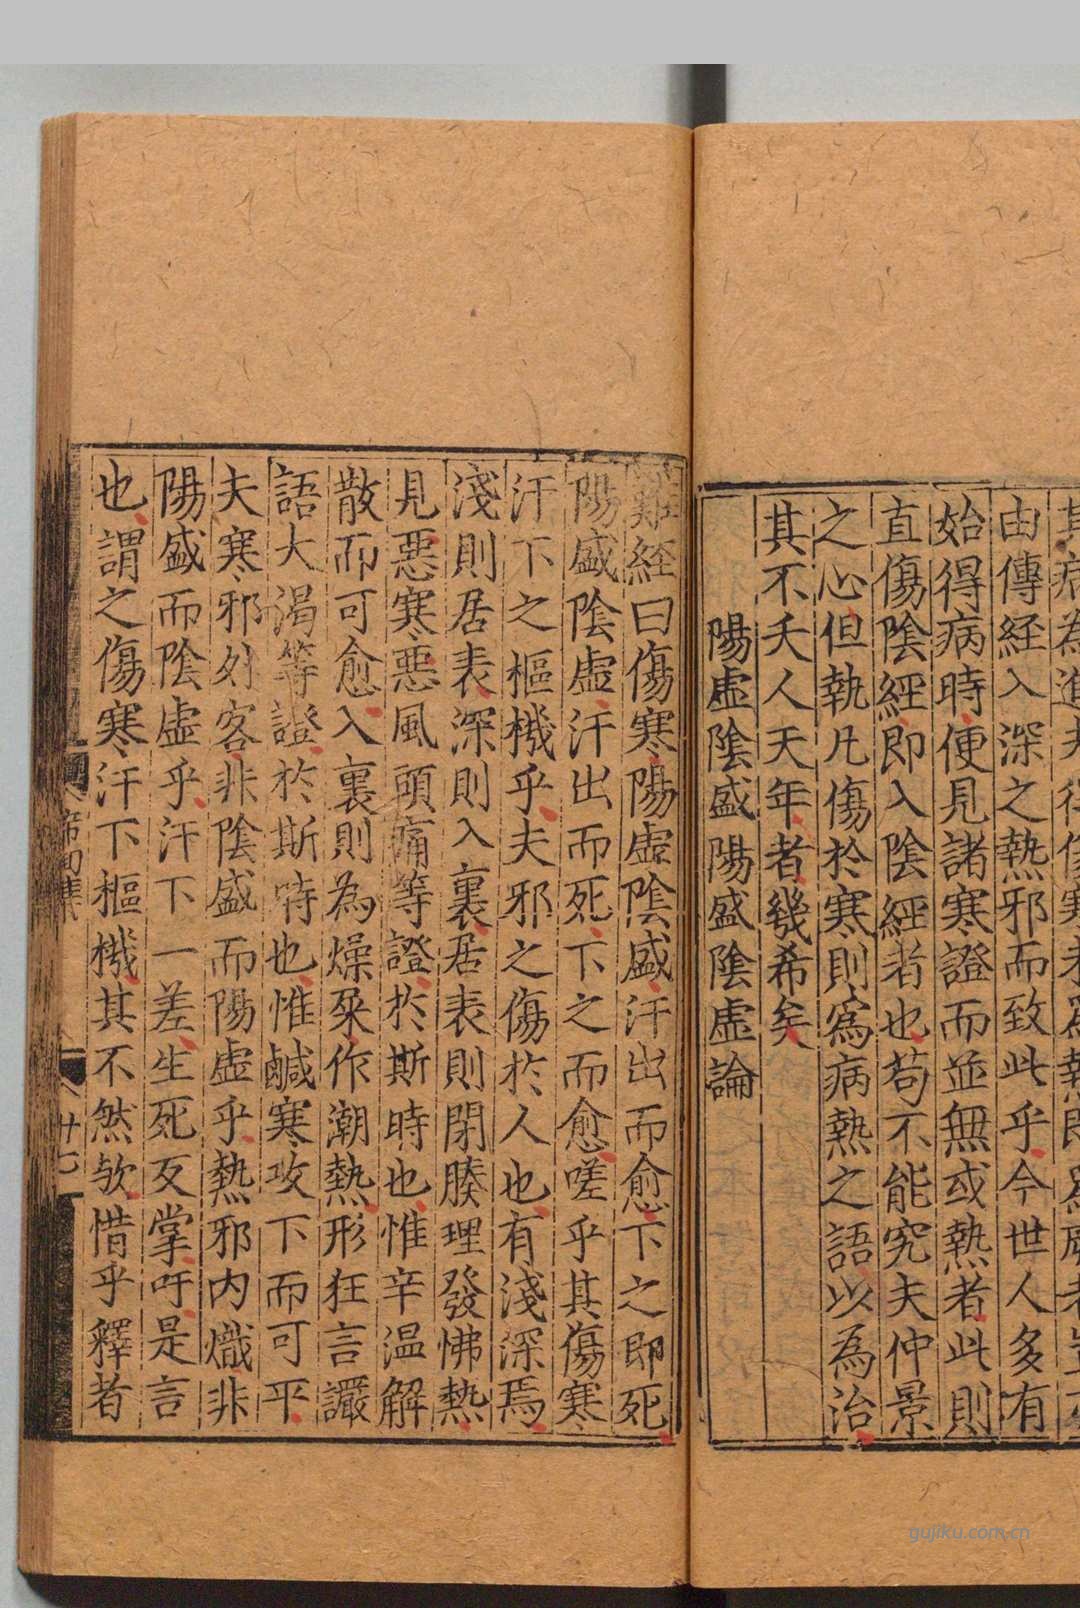 由傳経入深之熱邪而致此乎今世人多有
始得病時便見諸寒證而並無或熱者此則
直傷陰經即入陰經者也苟不能究夫仲景
之心但執凡傷於寒則爲病熱之語以為治
其不夭人天年者幾希矣
陽虛陰盛陽盛陰虛論
難経曰傷寒陽虛陰盛汗出而愈下之即死
陽盛陰虛汗出而死下之而愈嗟乎其傷寒
汗下之樞機乎夫邪之傷於人也有淺深焉
淺則居表深則入裏居表則閉腠理發怫熱
見惡寒惡風頭痛等證於斯時也惟辛温解
散而可愈入裏則為燥屎作潮熱形狂言讝
語大渴等證於斯時也惟鹹寒攻下而可平
夫寒邪外客非陰盛而陽虛乎熱邪内熾非
陽盛而陰虛乎汗下一差生死反掌吁是言
也謂之傷寒汗下樞機其不然欤惜乎釋者
廿七
gujiku.com.cn